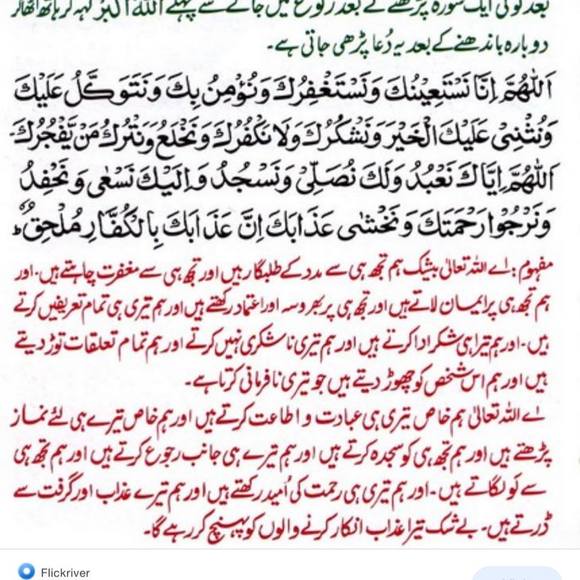 بعد کوئی ایک سورۃ پڑھنے کے بعد رکوع میں جانے سے پہلے اللہ اکبر کہہ کر ہاتھ اٹھا کر
دوبارہ باندھنے کے بعد یہ دُعا پڑھی جاتی ہے۔
اَللّٰهُمَّ اِنَّا نَسْتَعِيْنُكَ وَنَسْتَغْفِرُكَ وَنُؤْمِنُ بِكَ وَنَتَوَكَّلُ عَلَيْكَ
وَنُثْنِيْ عَلَيْكَ الْخَيْرَ وَنَشْكُرُكَ وَلَا نَكْفُرُكَ وَنَخْلَعُ وَنَتْرُكُ مَنْ يَّفْجُرُكَ
اَللّٰهُمَّ اِيَّاكَ نَعْبُدُ وَلَكَ نُصَلِّيْ وَنَسْجُدُ وَاِلَيْكَ نَسْعٰى وَنَحْفِدُ
وَنَرْجُوْا رَحْمَتَكَ وَنَخْشٰى عَذَابَكَ اِنَّ عَذَابَكَ بِالْكُفَّارِ مُلْحِقٌ ؕ
مفہوم: اے اللہ تعالیٰ بیشک ہم تجھ ہی سے مدد کے طلبگار ہیں اور تجھ ہی سے مغفرت چاہتے ہیں۔ اور
ہم تجھ ہی پر ایمان لاتے ہیں اور تجھ ہی پر بھروسہ اور اعتماد رکھتے ہیں اور ہم تیری ہی تمام تعریفیں کرتے
ہیں۔ اور ہم تیرا ہی شکر ادا کرتے ہیں اور ہم تیری ناشکری نہیں کرتے اور ہم تمام تعلقات توڑ دیتے
ہیں اور ہم اس شخص کو چھوڑ دیتے ہیں جو تیری نافرمانی کرتا ہے۔
اے اللہ تعالیٰ ہم خاص تیری ہی عبادت و اطاعت کرتے ہیں اور ہم خاص تیرے ہی لئے نماز
پڑھتے ہیں اور ہم تجھ ہی کو سجدہ کرتے ہیں اور ہم تیرے ہی جانب رجوع کرتے ہیں اور ہم تجھ ہی
سے لَو لگاتے ہیں۔ اور ہم تیری ہی رحمت کی اُمید رکھتے ہیں اور ہم تیرے عذاب اور گرفت سے
ڈرتے ہیں۔ بے شک تیرا عذاب انکار کرنے والوں کو پہنچ کر رہے گا۔
Flickriver